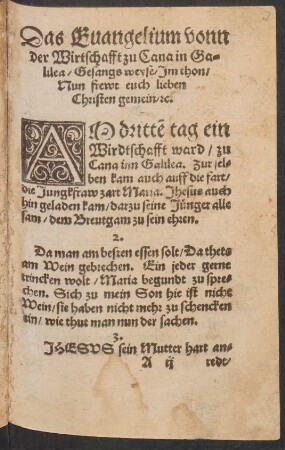 Das Euangelium vonn
der Wirtschafft zu Cana in Ga-
lilea / Gesangs weyse / Jm thon /
Nun frewt euch lieben
Christen gemein / ꝛc.
AM dritte͂ tag ein
Wirdtschafft ward / zu
Cana inn Galilea. Zur sel-
ben kam auch auff die fart /
die Jungkfraw zart Maria. Jhesus auch
hin geladen kam / darzu seine Jünger alle
sam / dem Breutgam zu sein ehren.
2.
Da man am besten essen solt / Da thets
am Wein gebrechen. Ein jeder gerne
trincken wolt / Maria begundt zu spre-
chen. Sich zu mein Son hie ist nicht
Wein / sie haben nicht mehr zu schencken
ein / wie thut man nun der sachen.
3.
JHESVS sein Mutter hart an-
A ij redt /